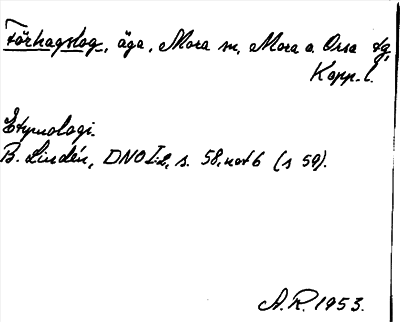 Förhagslag, äga, Mora sn, Mora o. Orsa tg,
Kopp. l.
Etymologi.
B. Lindén, DNO I:2, s. 58, not 6 (s 59).
A. R. 1953.